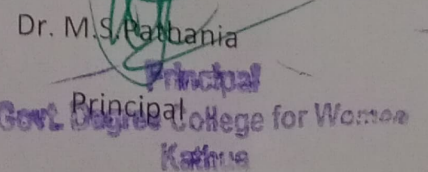 Dr. M.S.Pathania
Principal
Principal
Govt. Degree College for Women
Kathua